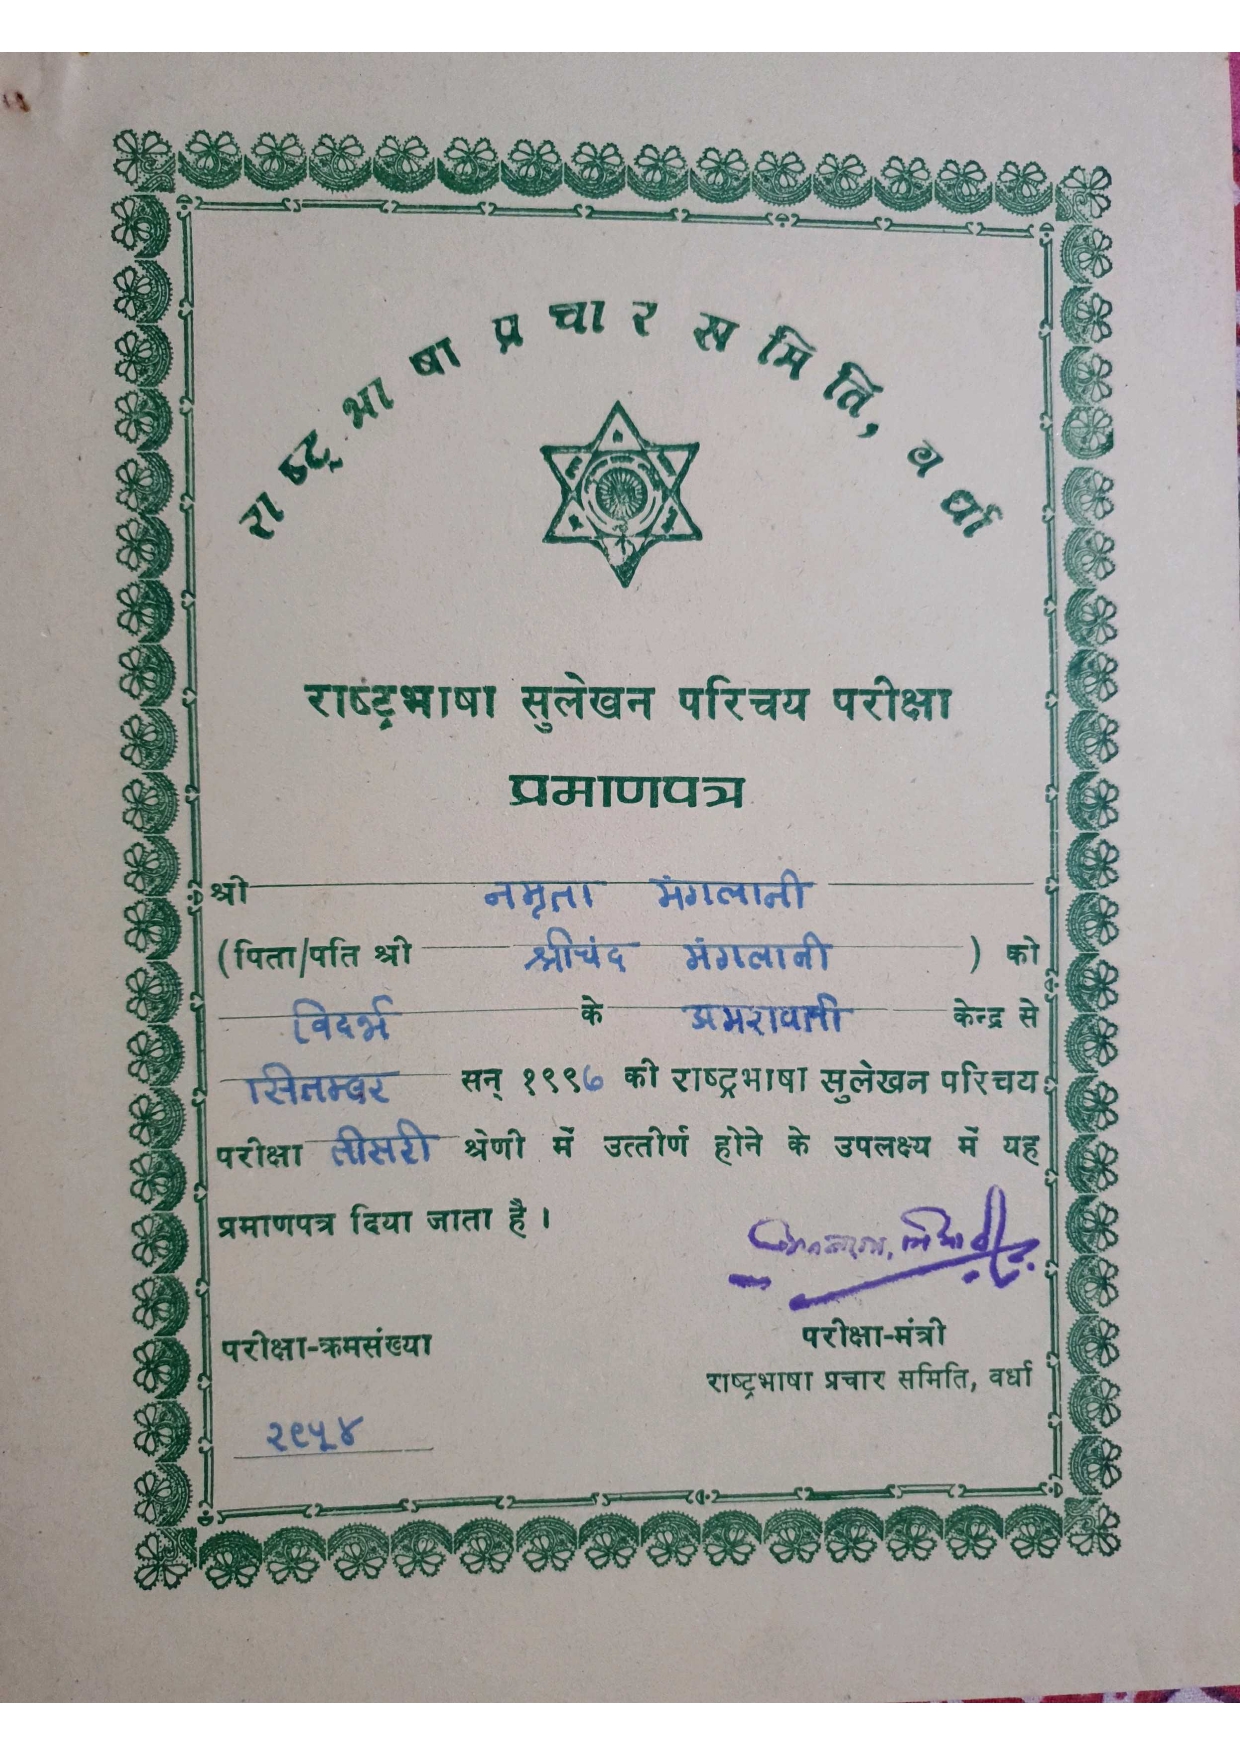 राष्ट्रभाषा प्रचार समिति, वर्धा
राष्ट्रभाषा सुलेखन परिचय परीक्षा
प्रमाणपत्र
श्री नमृता मंगलानी
(पिता/पति श्री श्रीचंद मंगलानी ) को
विदर्भ के अमरावती केन्द्र से
सितम्बर सन् १९९७ की राष्ट्रभाषा सुलेखन परिचय
परीक्षा तीसरी श्रेणी में उत्तीर्ण होने के उपलक्ष्य में यह
प्रमाणपत्र दिया जाता है।
परीक्षा-क्रमसंख्या
परीक्षा-मंत्री
राष्ट्रभाषा प्रचार समिति, वर्धा
२९५४